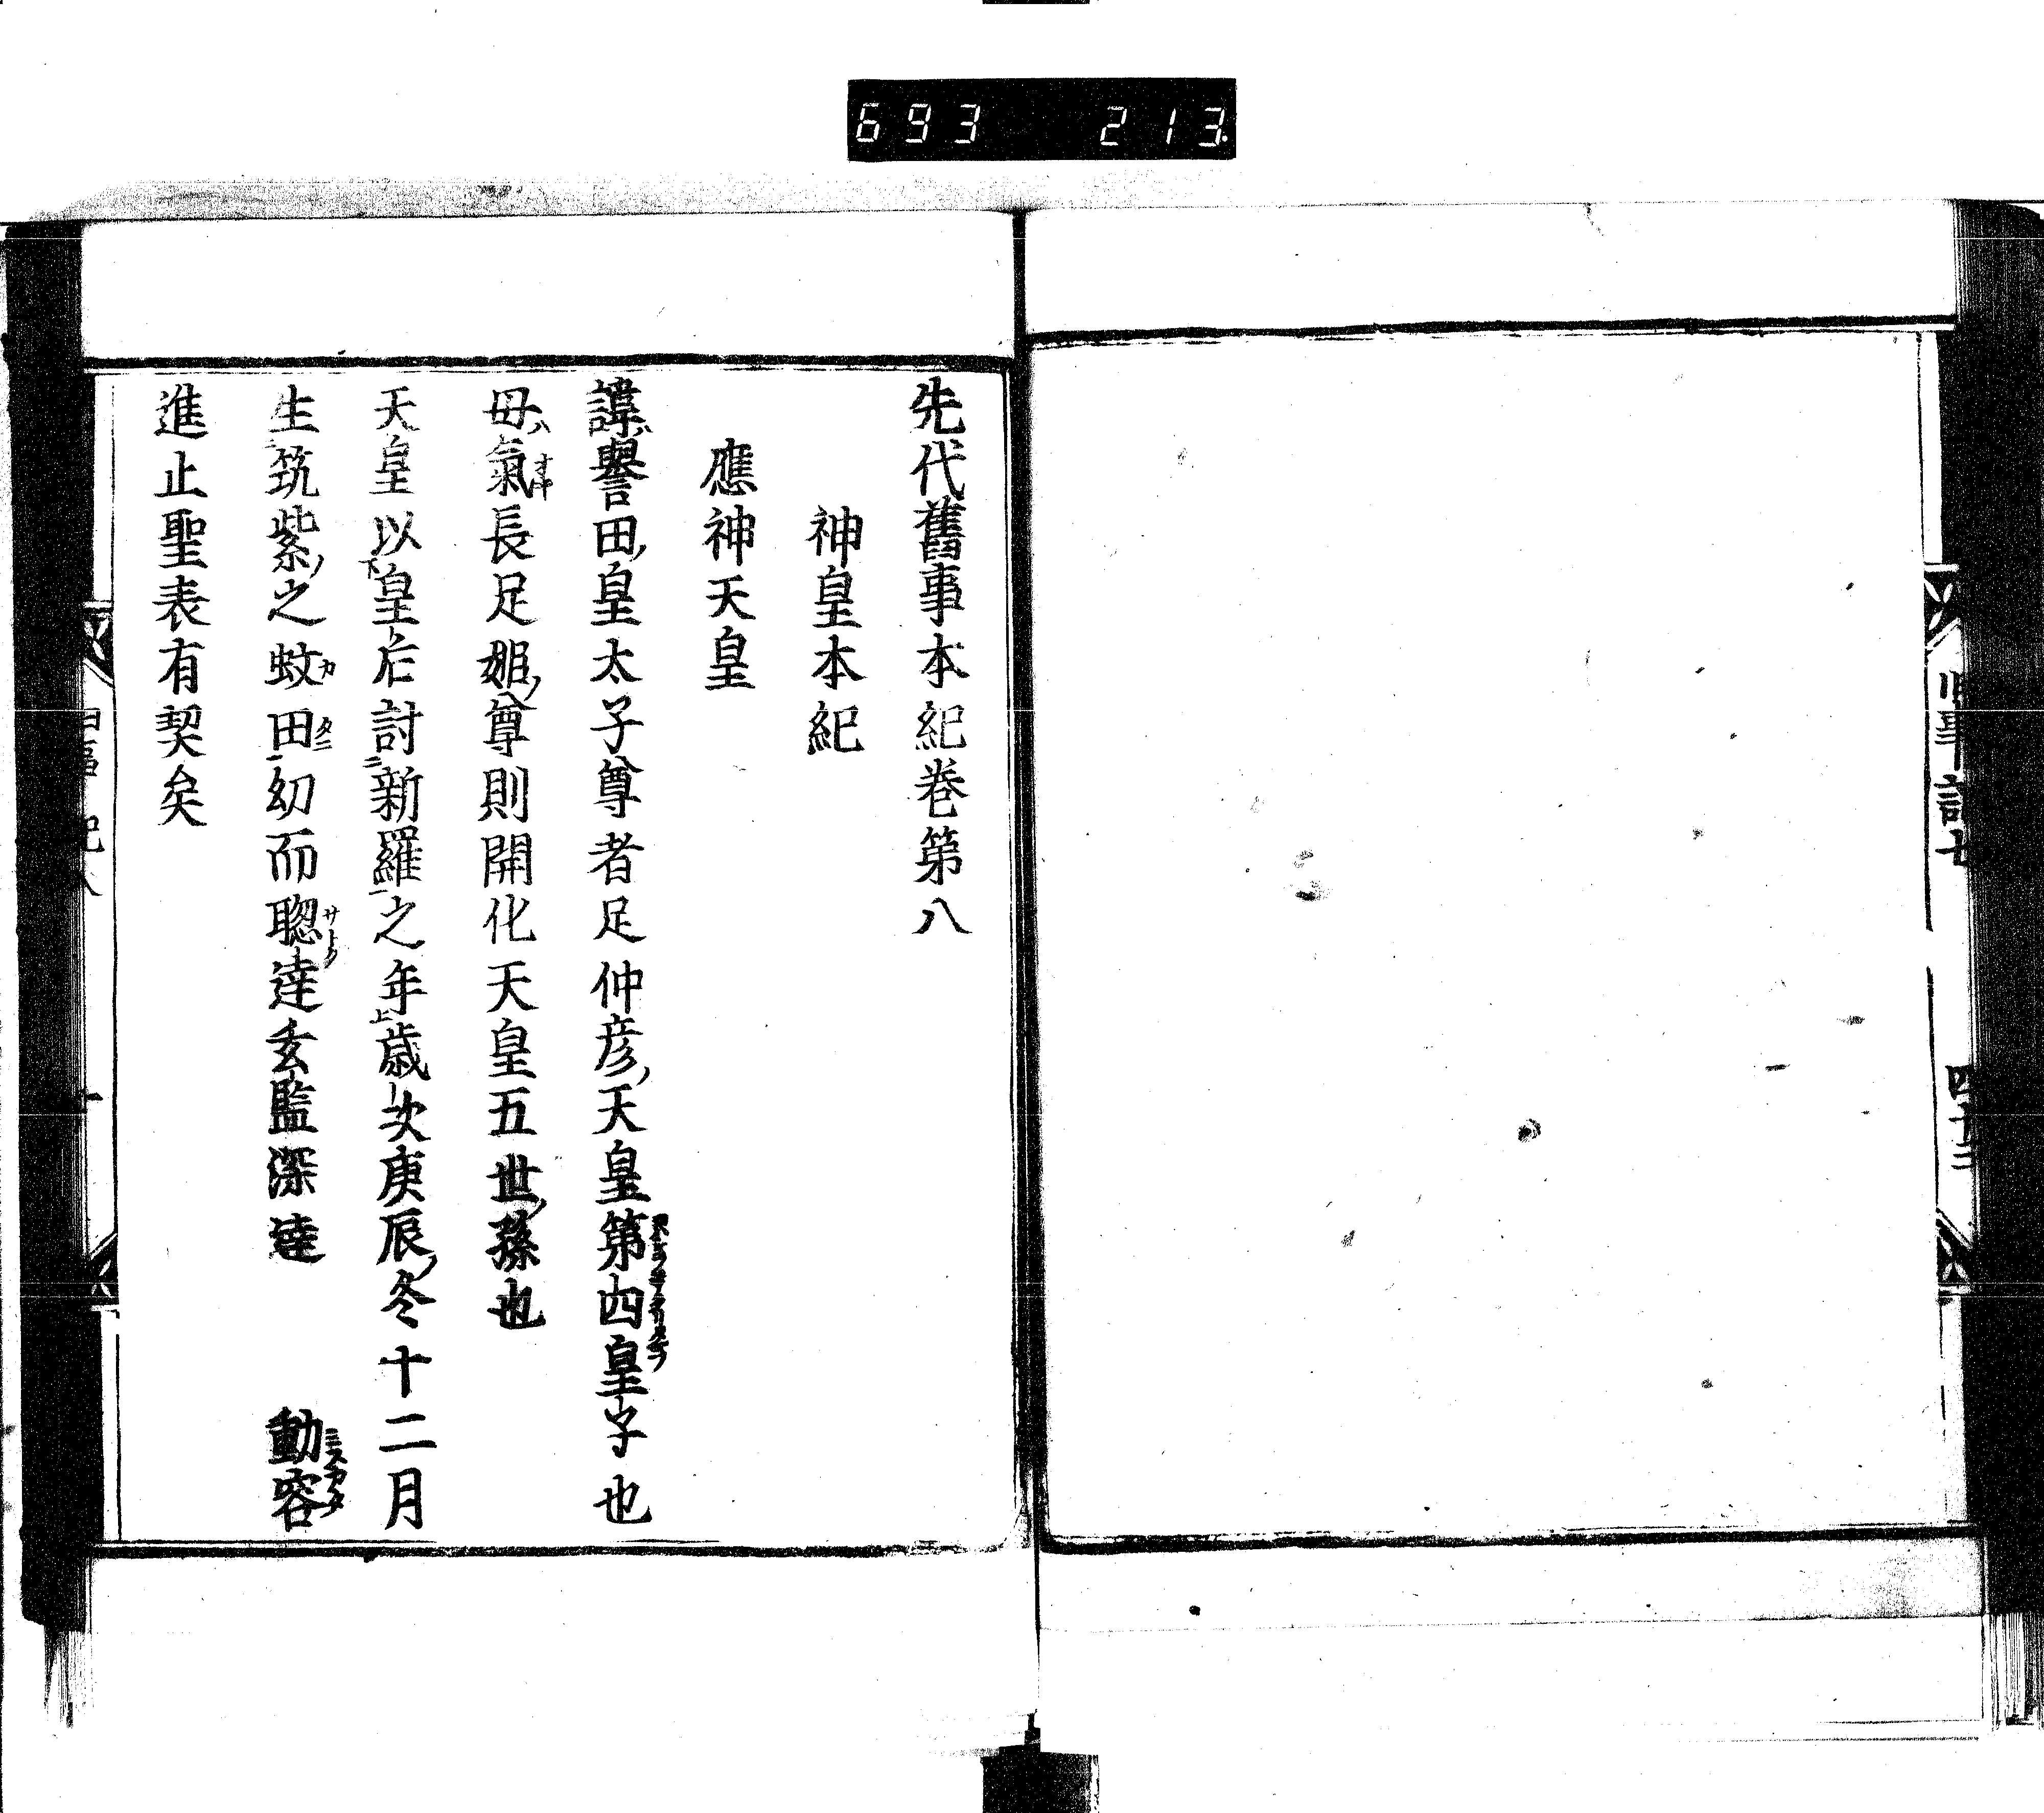 693 213
先代舊事本紀巻第八
神皇本紀
應神天皇
諱譽田皇太子尊者足仲彦天皇第四皇子也
母氣長足姫尊則開化天皇五世孫也
天皇以皇后討新羅之年歳次庚辰冬十二月
生筑紫之蚊田幼而聰達玄監深遠 動容
進止聖表有契矣